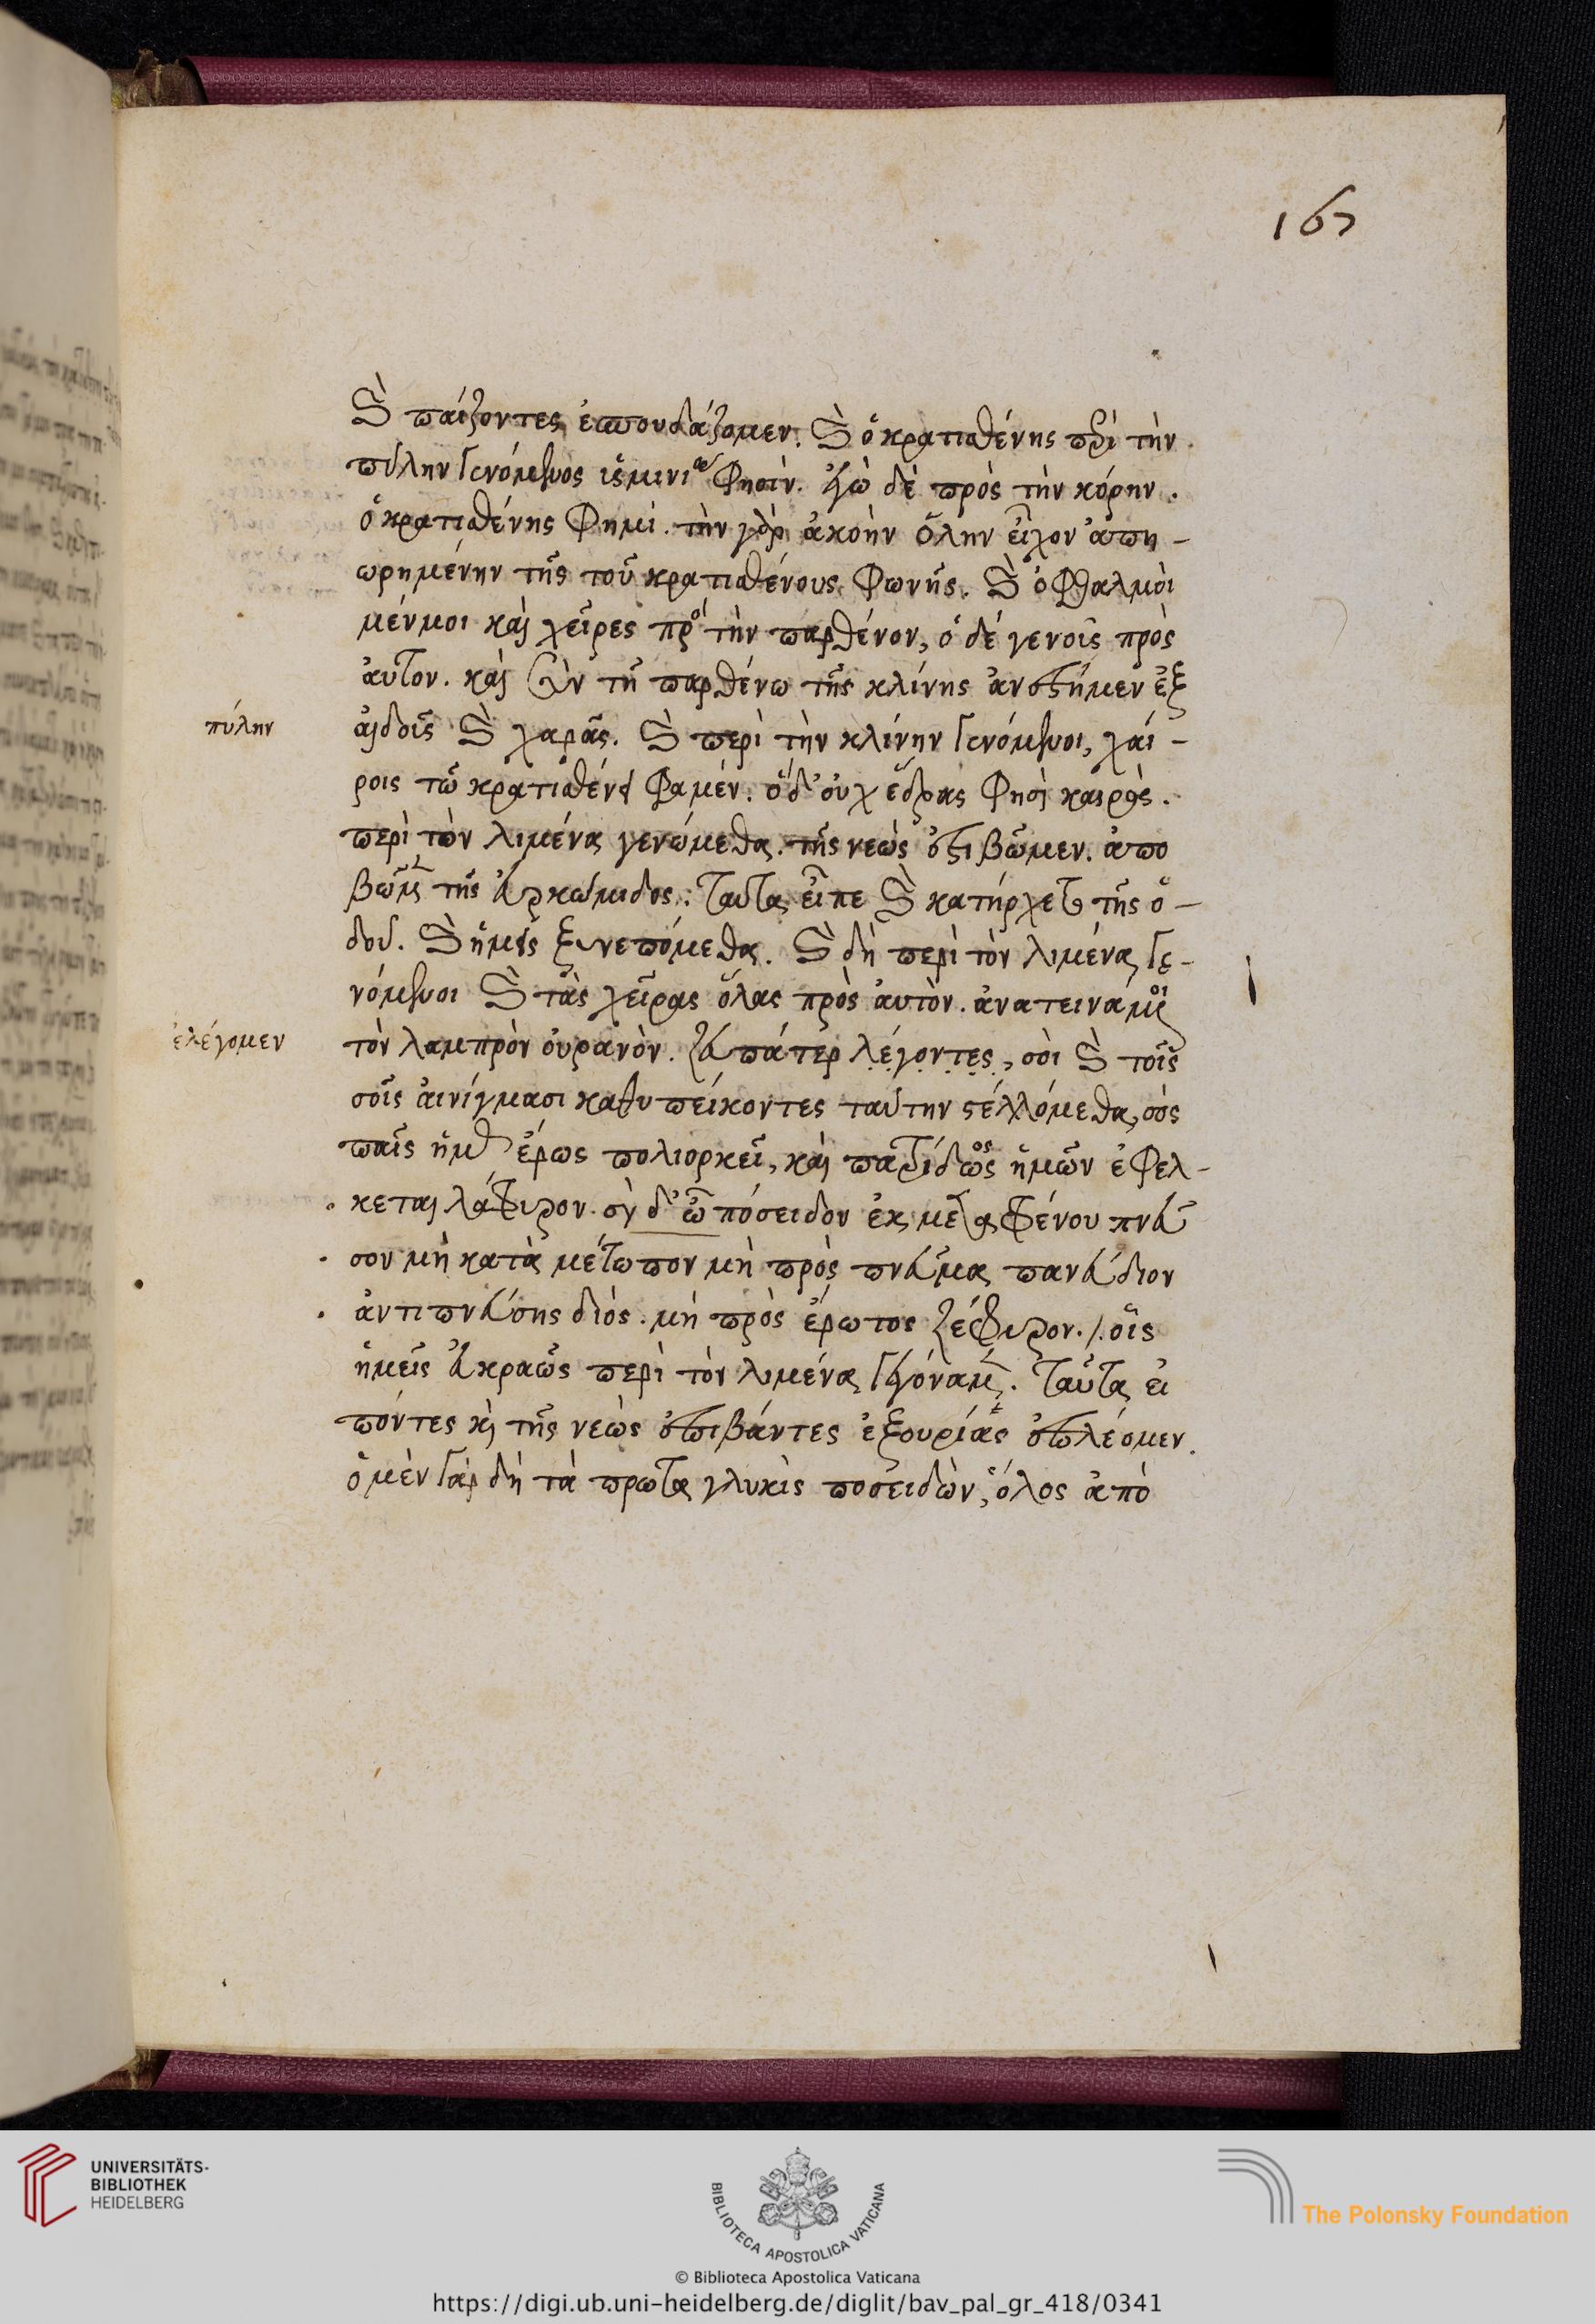 167
καὶ παίζοντες ἐσπουδάζομεν. καὶ ὁ κρατισθένης περὶ τὴν
πύλην γενόμενος ὑσμινία φησίν. ἐγὼ δὲ πρὸς τὴν κόρην.
ὁ κρατισθένης φημί. τὴν γὰρ ἀκοὴν ὅλην εἶχον ἀπη-
ωρημένην τῆς τοῦ κρατισθένους φωνῆς. καὶ ὀφθαλμοὶ
μέν μοι καὶ χεῖρες πρὸς τὴν παρθένον, ὁ δέ γε νοῦς πρὸς
αὐτον. καὶ σὺν τῇ παρθένω τῆς κλίνης ἀνέστημεν ἐξ
αἰδοῦς καὶ χαρᾶς. καὶ περὶ τὴν κλίνην γενόμενοι, χαί-
ροις τῶ κρατισθένει φαμέν. ὁ δ' οὐχ ἕδρας φησὶ καιρός.
περὶ τὸν λιμένα γενώμεθα. τῆς νεὼς ἐπιβῶμεν. ἀπο
βῶμεν τῆς εὐρυκώμιδος. Ταῦτα εἶπε καὶ κατήρχετο τῆς ὁ-
δοῦ. καὶ ἡμεῖς ξυνεπόμεθα. καὶ δὴ περὶ τὸν λιμένα γε-
νόμενοι καὶ τὰς χεῖρας ὅλας πρὸς αὐτὸν ἀνατεινάμενοι
τὸν λαμπρὸν οὐρανὸν. ζεῦ πάτερ λέγοντες, σοὶ καὶ τοῖς
σοῖς αἰνίγμασι καθυπείκοντες ταύτην στελλόμεθα, σὸς
παῖς ἡμᾶς ἔρως πολιορκεῖ, καὶ πατρίδος ἡμῶν ἐφέλ-
κεται λάφυρον. σὺ δ' ὦ πόσειδον ἐκ μεταφρένου πνεῦ
σον μὴ κατὰ μέτωπον μὴ πρὸς πνεῦμα πανεύδιον
ἀντιπνεύσης διός. μὴ πρὸς ἔρωτος ζέφυρον. οἷς
ἡμεῖς εὐκραῶς περὶ τὸν λιμένα γεγόναμεν. Ταῦτα εἰ
πόντες καὶ τῆς νεὼς ἐπιβάντες ἐξουρίας ἐπλέομεν.
ὁ μὲν γὰρ δὴ τὰ πρῶτα γλυκὺς ποσειδῶν, ὅλος ἀπὸ
πύλην
ἐλέγομεν
UNIVERSITÄTS-
BIBLIOTHEK
HEIDELBERG
BIBLIOTECA APOSTOLICA VATICANA
The Polonsky Foundation
© Biblioteca Apostolica Vaticana
https://digi.ub.uni-heidelberg.de/diglit/bav_pal_gr_418/0341